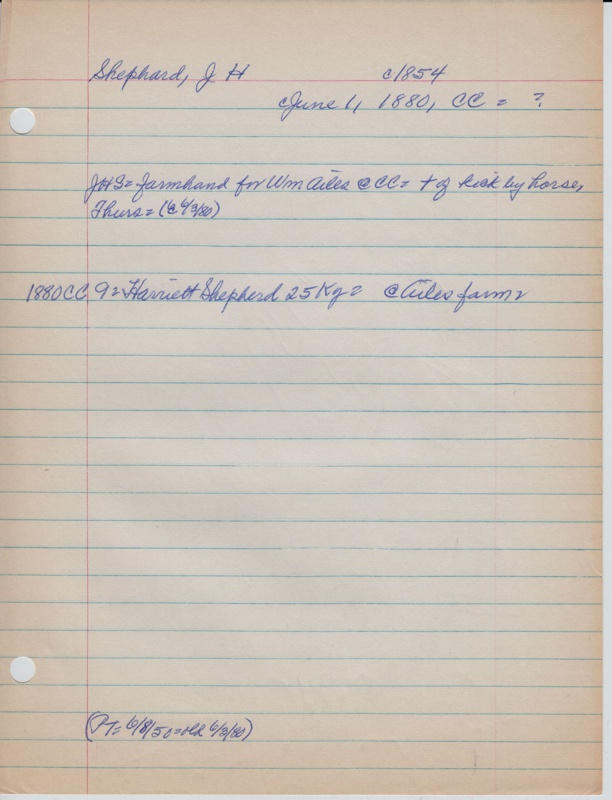 Shephard, J H c1854
June 1, 1880, CC = ?
JHS= farmhand for Wm Ailes @ CC= + of kick by horse,
Thurs= (c 6/3/80)
1880CC 9= Harriett Shepherd 25 Ky= @ Ailes farm=
(PT= 6/8/50=old 6/3/80)